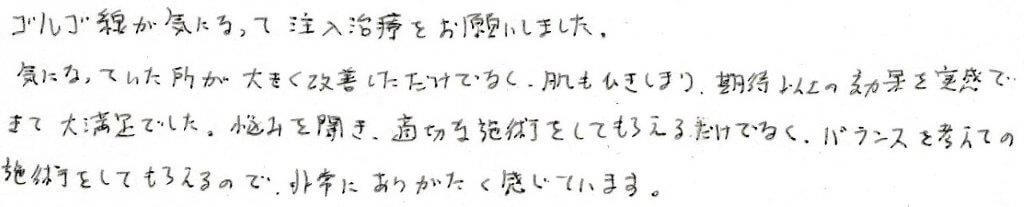 ゴルゴ線が気になって注入治療をお願いしました。
気になっていた所が大きく改善しただけでなく、肌もひきしまり、期待以上の効果を実感で
きて大満足でした。悩みを聞き、適切な施術をしてもらえるだけでなく、バランスを考えての
施術をしてもらえるので、非常にありがたく感じています。